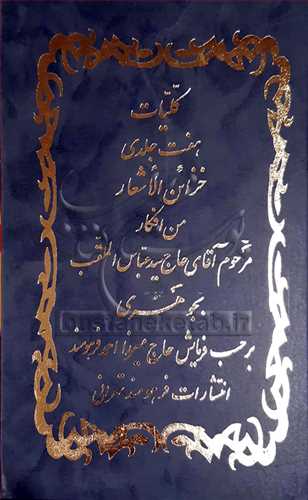 کلیّات
هفت جلدی
خزائن الأشعار
من افکار
مرحوم آقای حاج سید عباس الملقب
بجوهری
برحسب فرمایش حاج میرزا احمد
انتشارات تهرانی
bustaneketab.ir